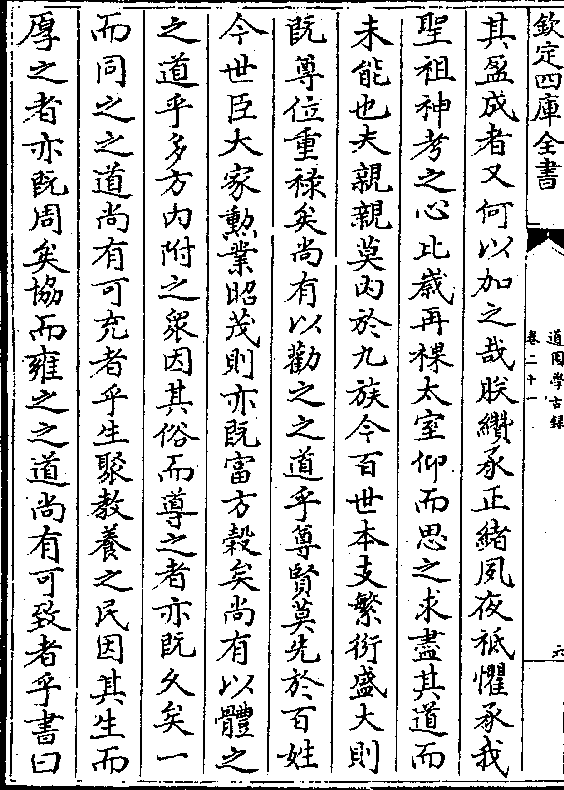 欽定四庫全書
道園學古録
卷二十一
六
其盈成者又何以加之哉朕纘承正緒夙夜祗懼承我
聖祖神考之心比嵗再祼太室仰而思之求盡其道而
未能也夫親親莫内於九族今百世本支繁衍盛大則
既尊位重禄矣尚有以勸之之道乎尊賢莫先於百姓
今世臣大家勲業昭茂則亦既富方榖矣尚有以體之
之道乎多方内附之衆因其俗而導之者亦既久矣一
而同之之道尚有可充者乎生聚教養之民因其生而
厚之者亦既周矣協而雍之之道尚有可致者乎書曰